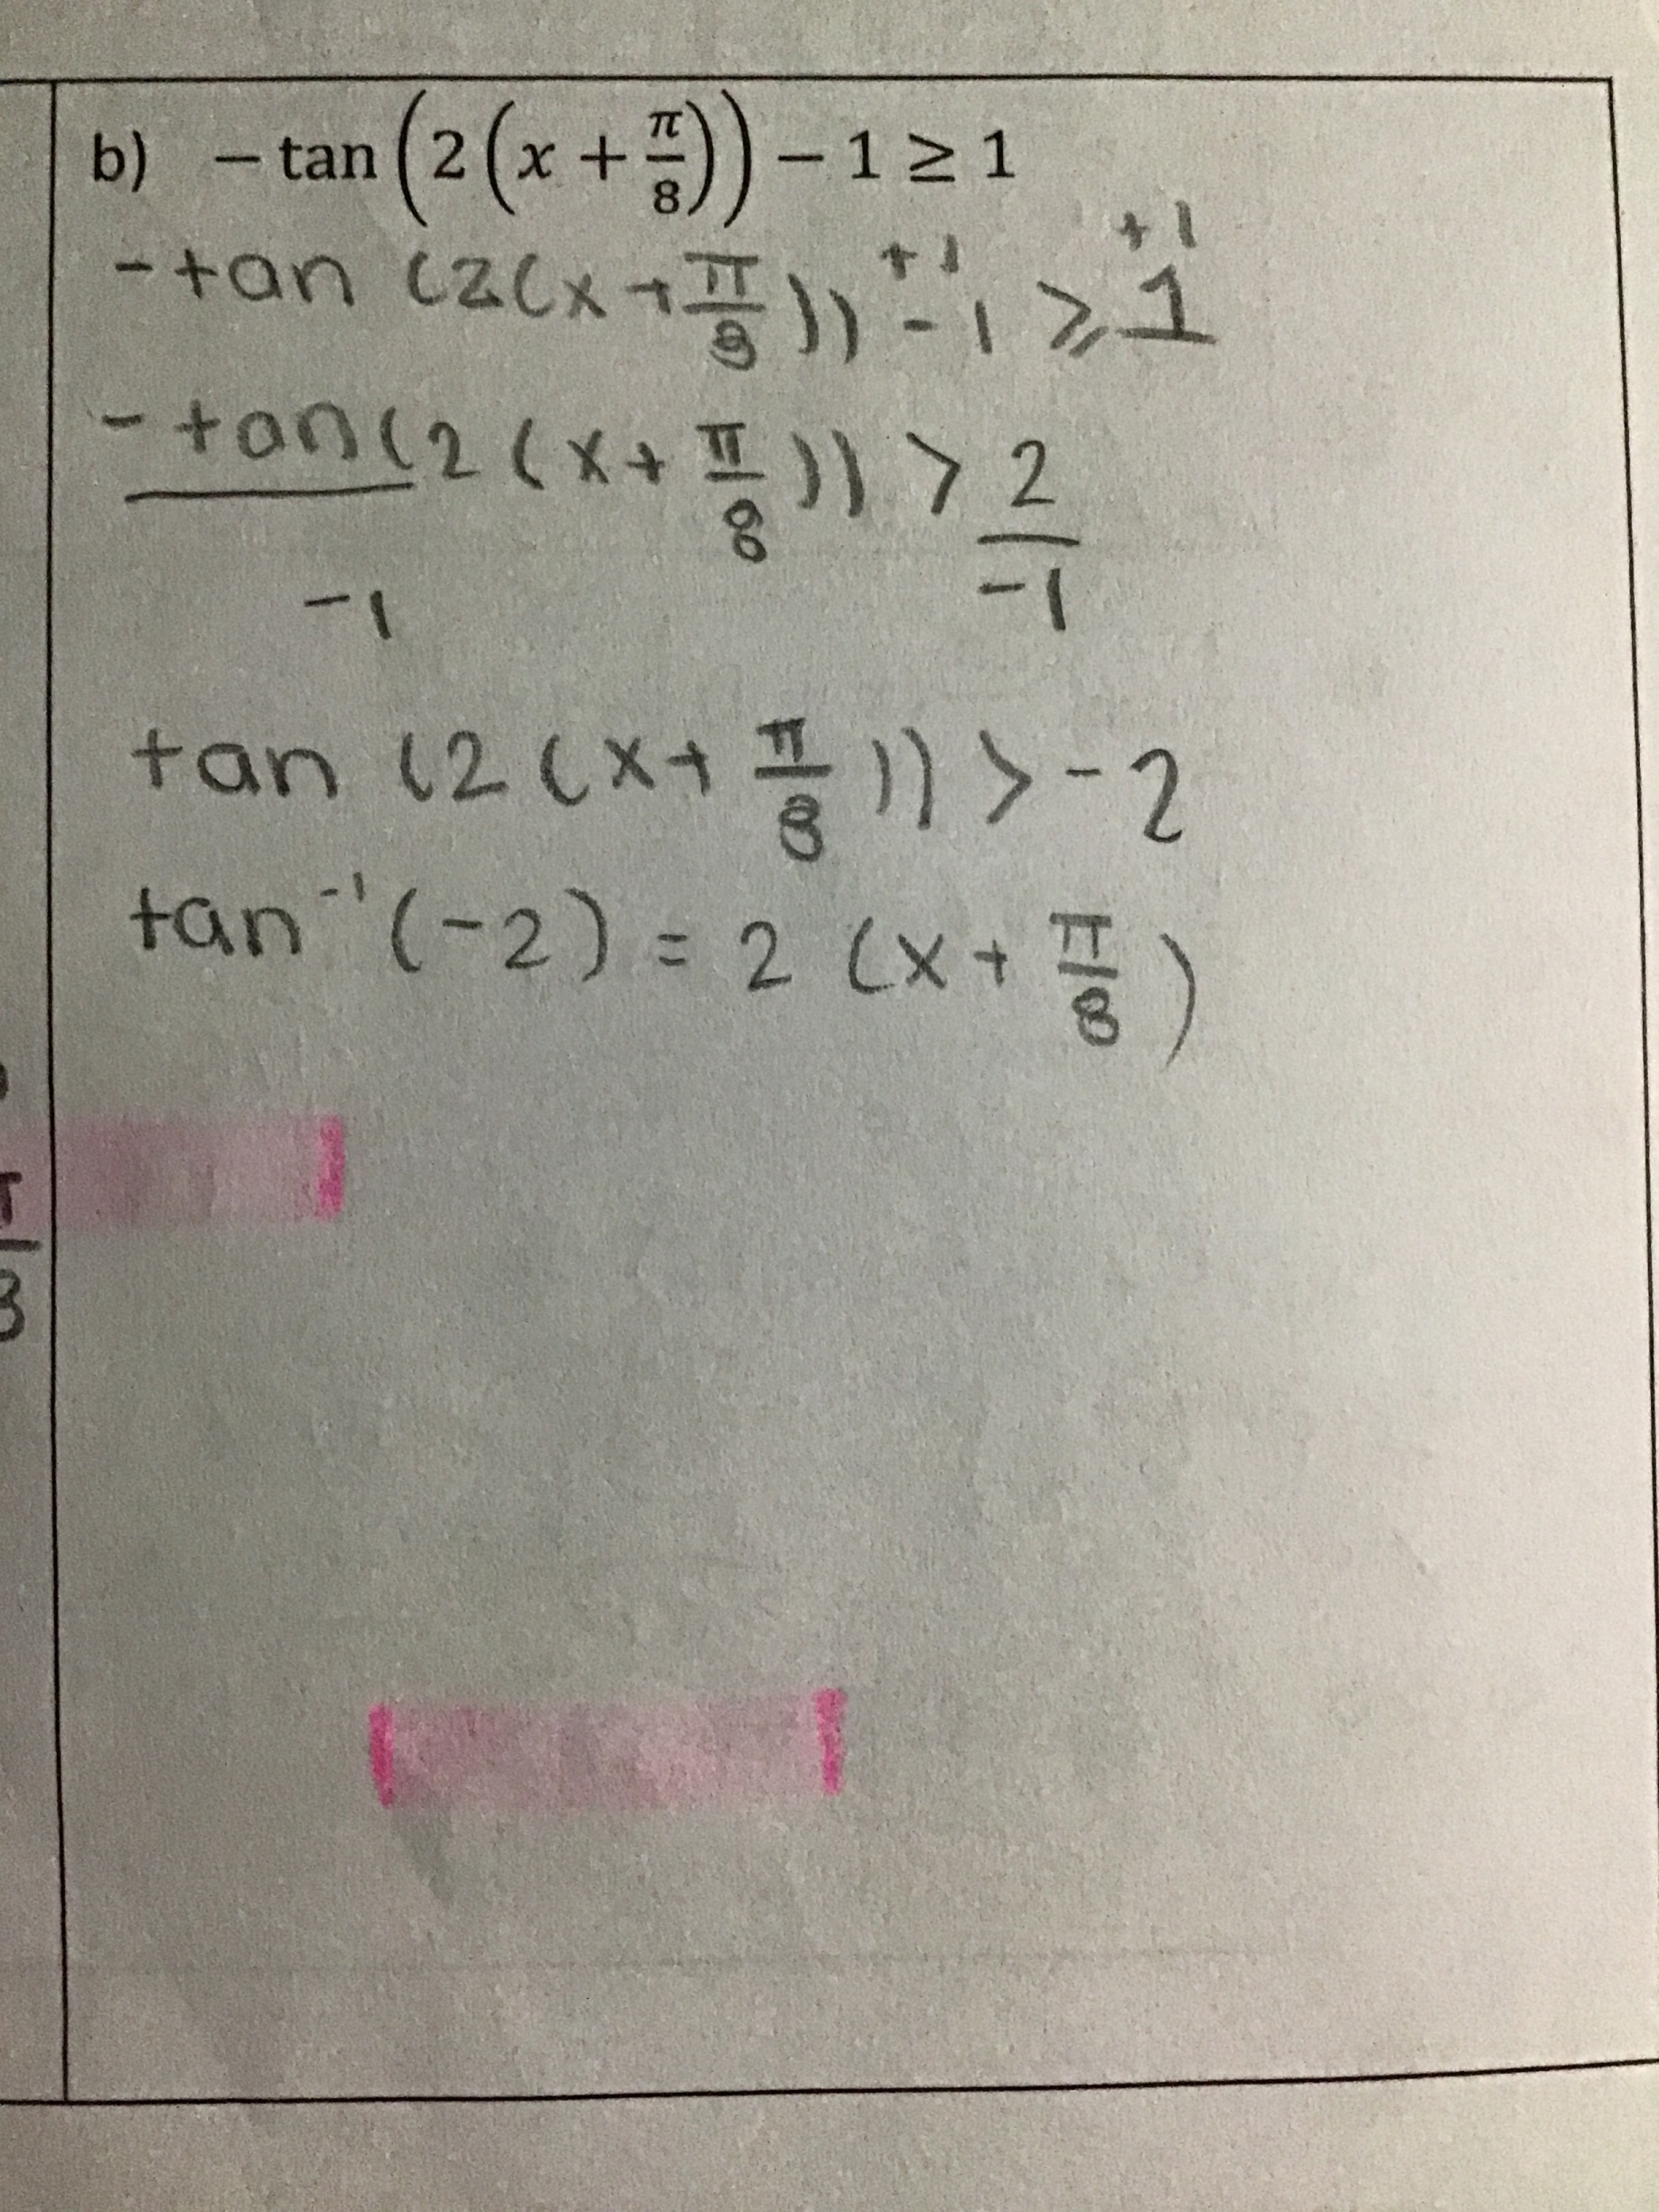 b) − tan (2 (x + π/8)) − 1 ≥ 1
-tan (2(x+π/8)) +1 -1 ≥ 1 +1
-tan(2(x+π/8)) > 2
-1 -1
tan (2(x+π/8)) > -2
tan⁻¹(-2) = 2 (x+π/8)
π/3